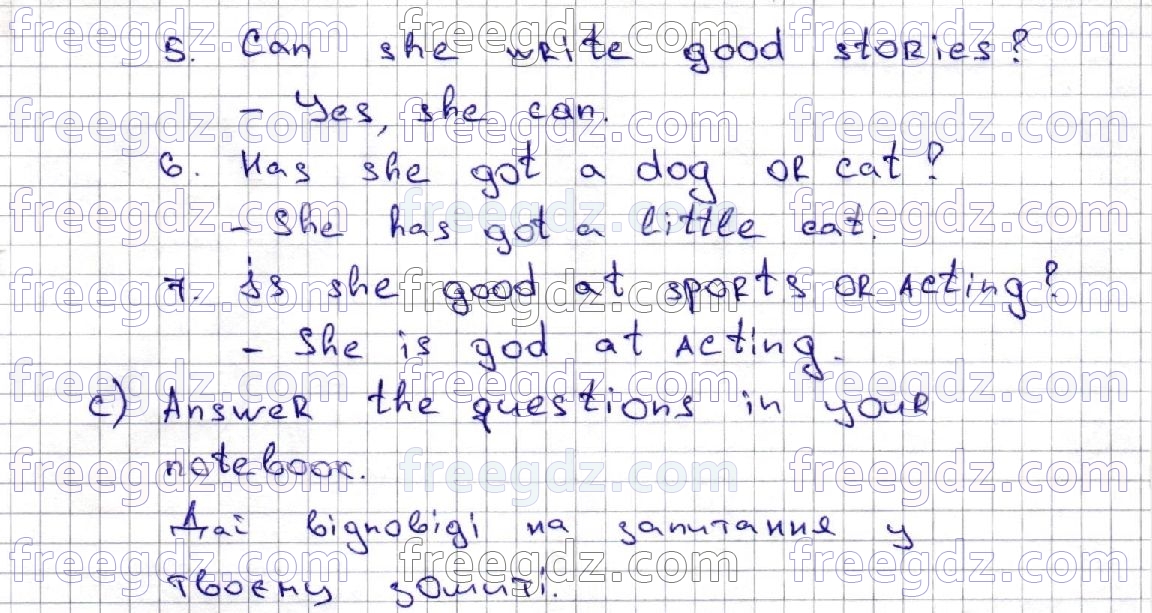 5. Can she write good stories?
- Yes, she can.
6. Has she got a dog or cat?
- She has got a little cat.
7. is she good at sports or acting?
- She is god at acting.
c) Answer the questions in your
notebook.
Дай відповіді на запитання у
твоєму зошиті.
freegdz.com